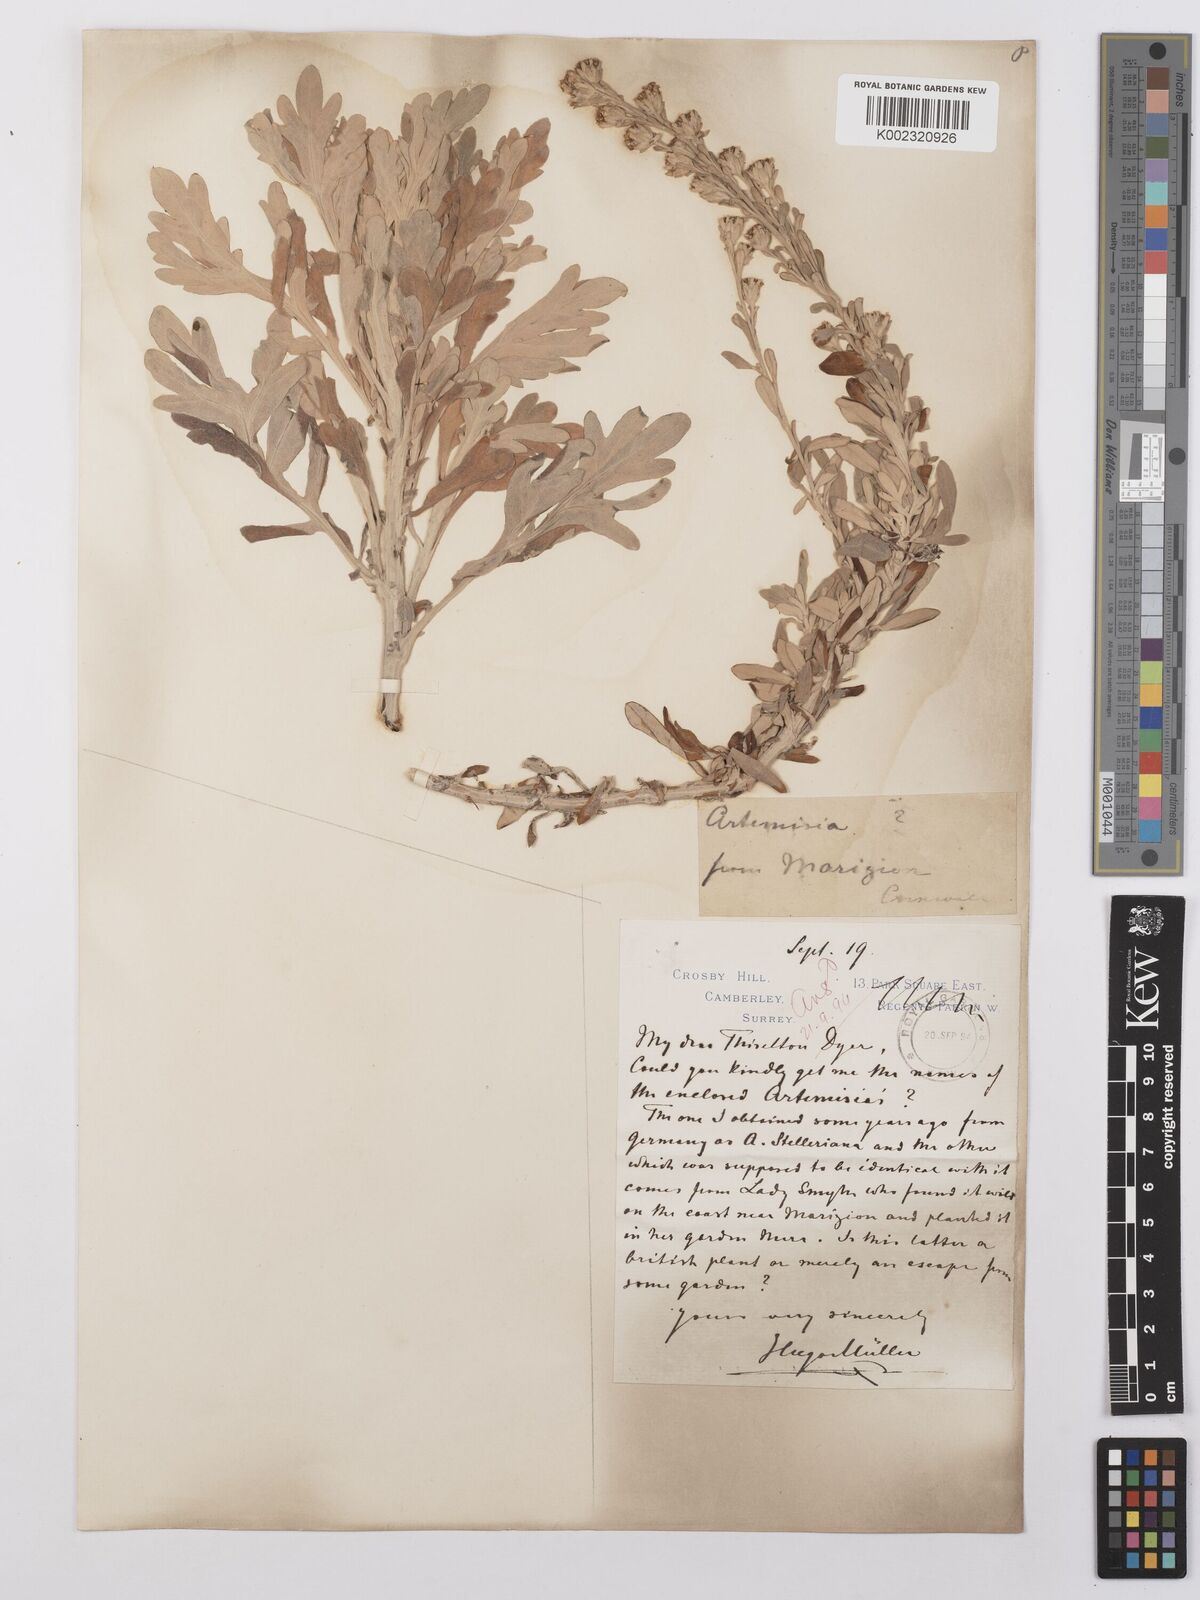 ROYAL BOTANIC GARDENS KEW
K002320926
Artemisia ?
from Marizion
Cornwall
Sept. 19.
CROSBY HILL,
CAMBERLEY,
SURREY.
13. PARK SQUARE EAST.
REGENTS PARK N W
Ansd
21.9.94
20 SEP 94
My dear Thiselton Dyer,
Could you kindly get me the names of
the enclosed Artemisia's ?
The one I obtained some years ago from
Germany as A. Stelleriana and the other
which was supposed to be identical with it
comes from Lady Smyth who found it wild
on the coast near Marizion and planted it
in her garden here. Is this latter a
british plant or merely an escape from
some garden ?
Yours very sincerely
Hugo Müller
inches
centimeters
Density
Don Williams
M001044
Kew
Royal Botanic Gardens
copyright reserved
0 1 2 3 4 5 6 7 8 9 10
cm